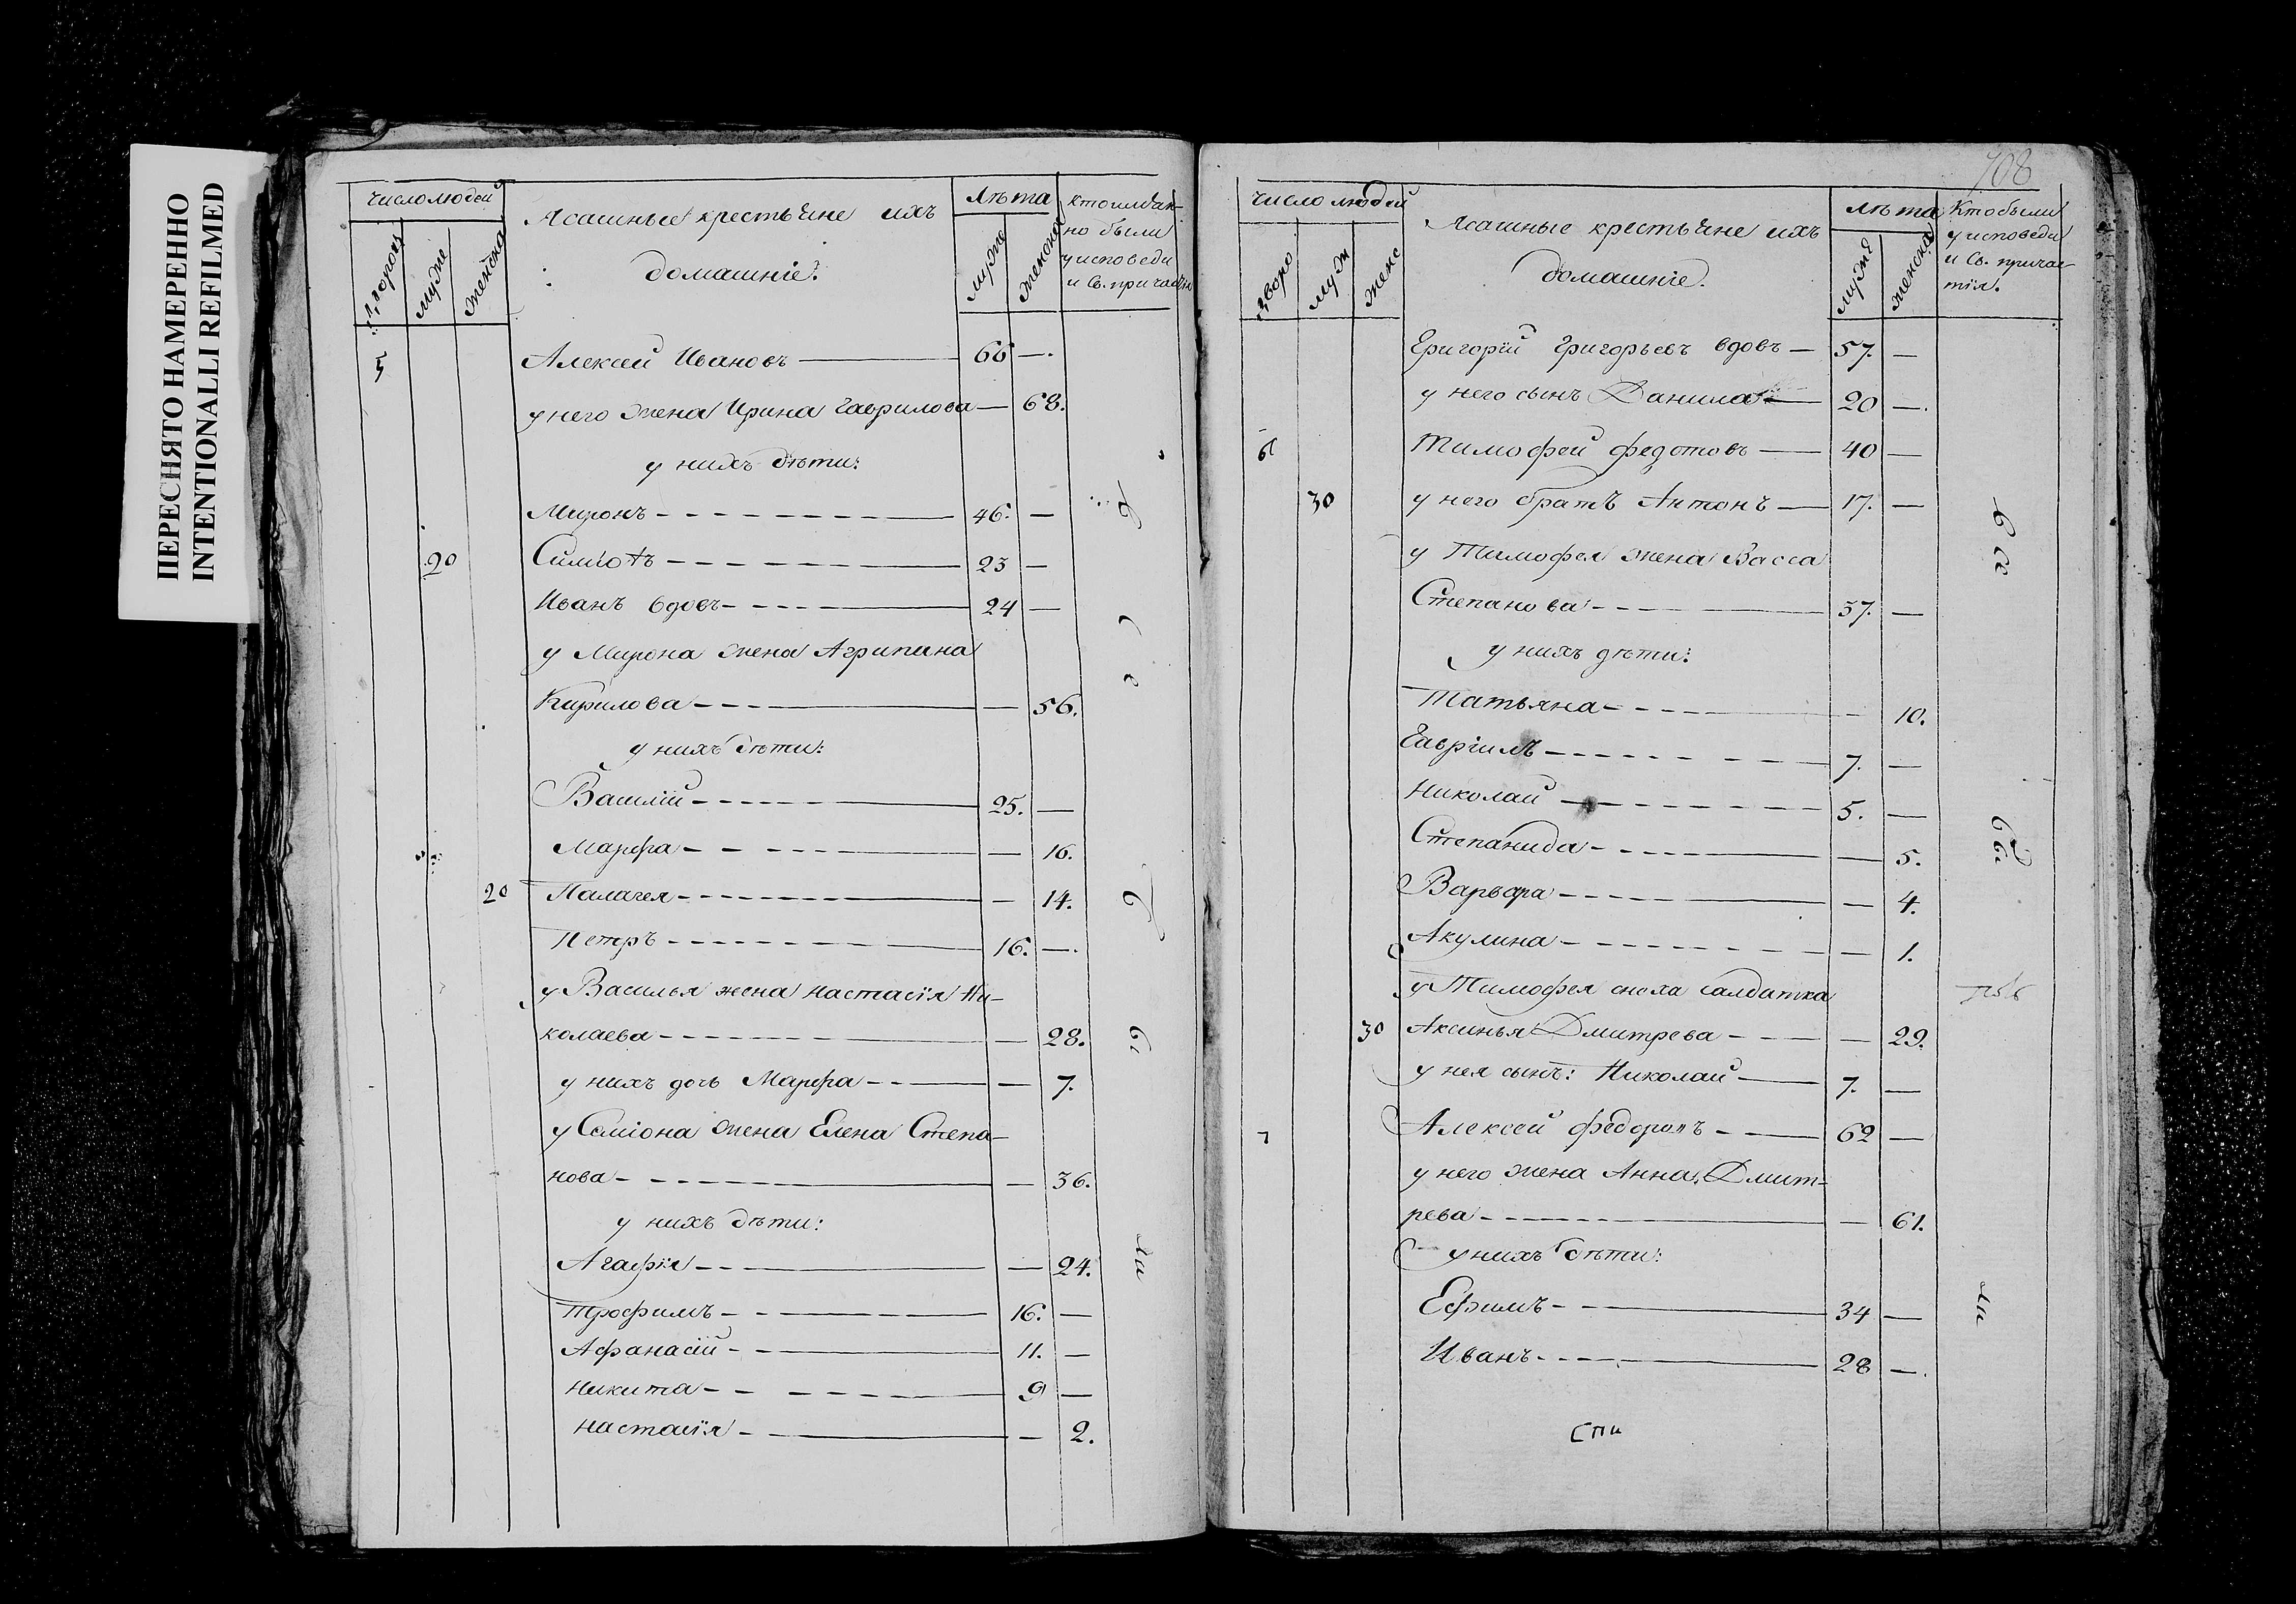 ПЕРЕСНЯТО НАМЕРЕННО
INTENTIONALLI REFILMED
число людей
Ясашные крестьяне ихъ
домашніе.
лѣта
но были
у исповеди
и Св. причастія
муже
женска
муже
женска
5 Алексей Ивановъ 66 —
у него жена Ирина Гаврилова — 68.
у нихъ дѣти:
Миронъ 46. —
20 Симіонъ 23 —
Иванъ вдовъ 24 —
у Мирона жена Агрипина
Кирилова — 56.
у нихъ дѣти:
Василій 25. —
Марфа — 16.
20 Палагея — 14.
Петръ 16. —
у Василья жена Настасія Ни-
колаева — 28.
у нихъ дочь Марфа — 7.
у Семіона жена Елена Степа-
нова — 36.
у нихъ дѣти:
Агафія — 24.
Трофимъ 16. —
Афанасій 11. —
Никита 9 —
Настасія — 2.
708
число людей
Ясашные крестьяне ихъ
домашніе.
лѣта
Кто были
у исповеди
и Св. причас-
тія.
дворо
муж
женс
муже
женска
Григорій Григорьевъ вдовъ — 57. —
у него сынъ Данила 20 —
6 Тимофей Федотовъ 40 —
30 у него братъ Антонъ 17. —
у Тимофея жена Васса
Степанова 37. —
у нихъ дѣти:
Татьяна — 10.
Гавріилъ 7. —
Николай 5. —
Степанида — 5.
Варвара — 4.
Акулина — 1.
у Тимофея сноха салдатка
30 Аксинья Дмитрева — 29.
у нея сынъ: Николай 7. —
7 Алексей Федоровъ 62 —
у него жена Анна Дмит-
рева — 61.
у нихъ дѣти:
Ефимъ 34 —
Иванъ 28 —
Спи